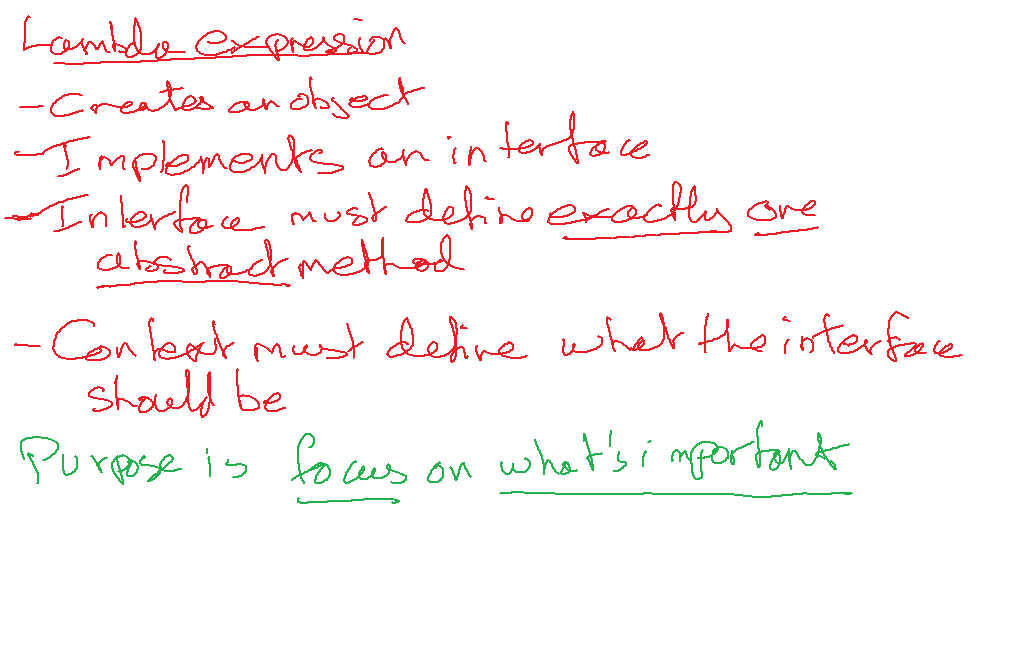 Lambda expression
- Creates an object
- Implements an interface
- Interface must define exactly one
abstract method
- Context must define what the interface
should be
Purpose is focus on what's important